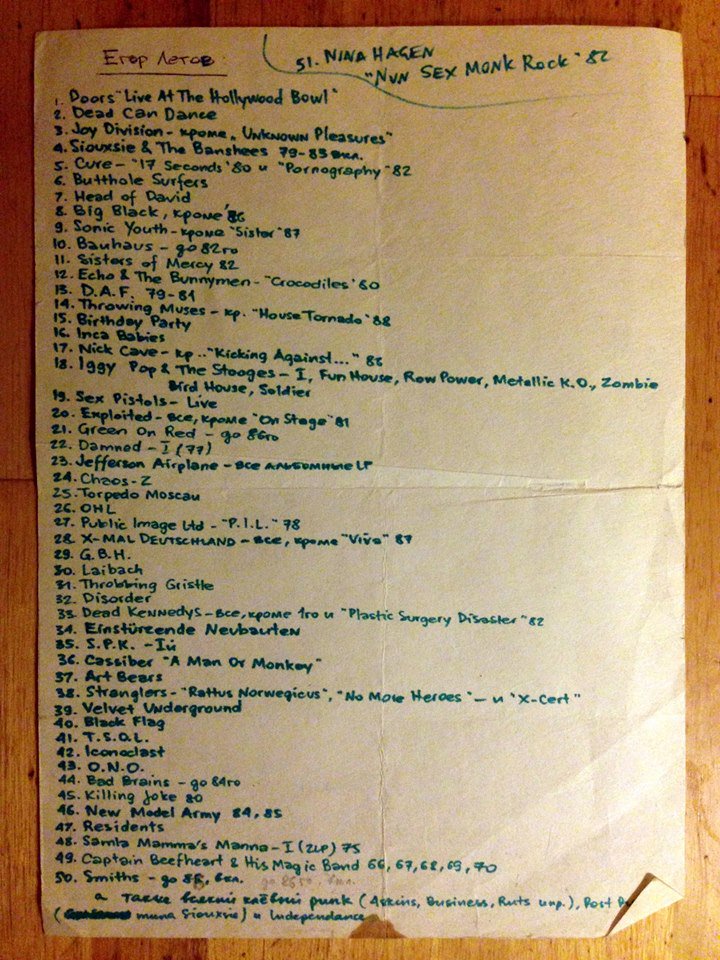 Егор Летов:
51. NINA HAGEN
"NUN SEX MONK Rock" 82
1. Doors "Live At The Hollywood Bowl"
2. Dead Can Dance
3. Joy Division - кроме "UNKNOWN Pleasures"
4. Siouxsie & The Banshees 79-83 вкл.
5. Cure - "17 Seconds" 80 и "Pornography" 82
6. Butthole Surfers
7. Head of David
8. Big Black, кроме '86
9. Sonic Youth - кроме "Sister" 87
10. Bauhaus - до 82го
11. Sisters of Mercy 82
12. Echo & The Bunnymen - "Crocodiles" 80
13. D.A.F. 79-81
14. Throwing Muses - кр. "House Tornado" 88
15. Birthday Party
16. Inca Babies
17. Nick Cave - кр.. "Kicking Against..." 86
18. Iggy Pop & The Stooges - I, Fun House, Row Power, Metallic K.O., Zombie
Bird House, Soldier
19. Sex Pistols - Live
20. Exploited - все, кроме "On Stage" 81
21. Green On Red - до 86го
22. Damned - I (77)
23. Jefferson Airplane - все альбомные LP
24. Chaos-Z
25. Torpedo Moscau
26. OHL
27. Public Image Ltd - "P.I.L." 78
28. X-MAL DEUTSCHLAND - все, кроме "Viva" 87
29. G.B.H.
30. Laibach
31. Throbbing Gristle
32. Disorder
33. Dead Kennedys - все, кроме 1го и "Plastic Surgery Disaster" 82
34. Einstürzende Neubauten
35. S.P.K. - Iй
36. Cassiber "A Man Or Monkey"
37. Art Bears
38. Stranglers - "Rattus Norwegicus", "No More Heroes" - и "X-Cert"
39. Velvet Underground
40. Black Flag
41. T.S.O.L.
42. Iconoclast
43. O.N.O.
44. Bad Brains - до 84го
45. Killing Joke 80
46. New Model Army 84, 85
47. Residents
48. Samla Mamma's Manna - I (2LP) 75
49. Captain Beefheart & His Magic Band 66, 67, 68, 69, 70
50. Smiths - до 85, вкл.
а также всякий клёвый punk (Business, Ruts), Post
(типа Siouxsie) и Independance